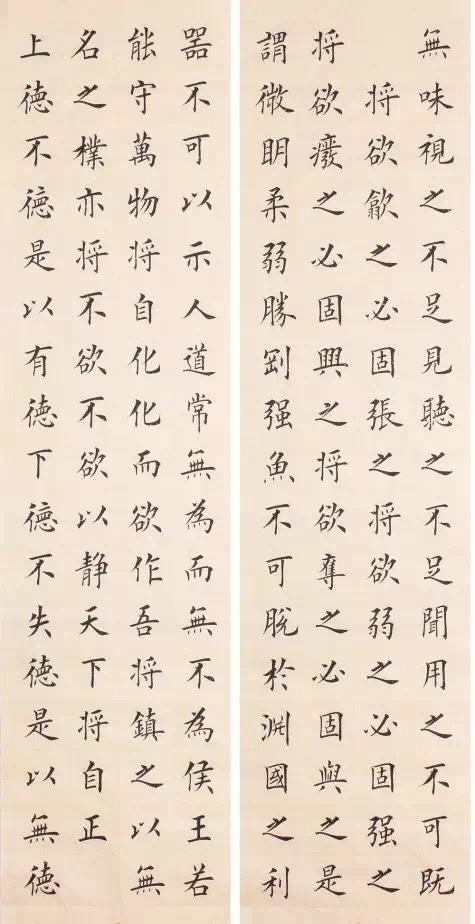 無味視之不足見聽之不足聞用之不可既
将欲歙之必固張之将欲弱之必固强之
将欲癈之必固興之将欲奪之必固與之是
謂微眀柔弱勝剛强魚不可脫於淵國之利
器不可以示人道常無為而無不為侯王若
能守萬物将自化化而欲作吾将鎮之以無
名之樸亦将不欲不欲以静天下将自正
上德不德是以有德下德不失德是以無德